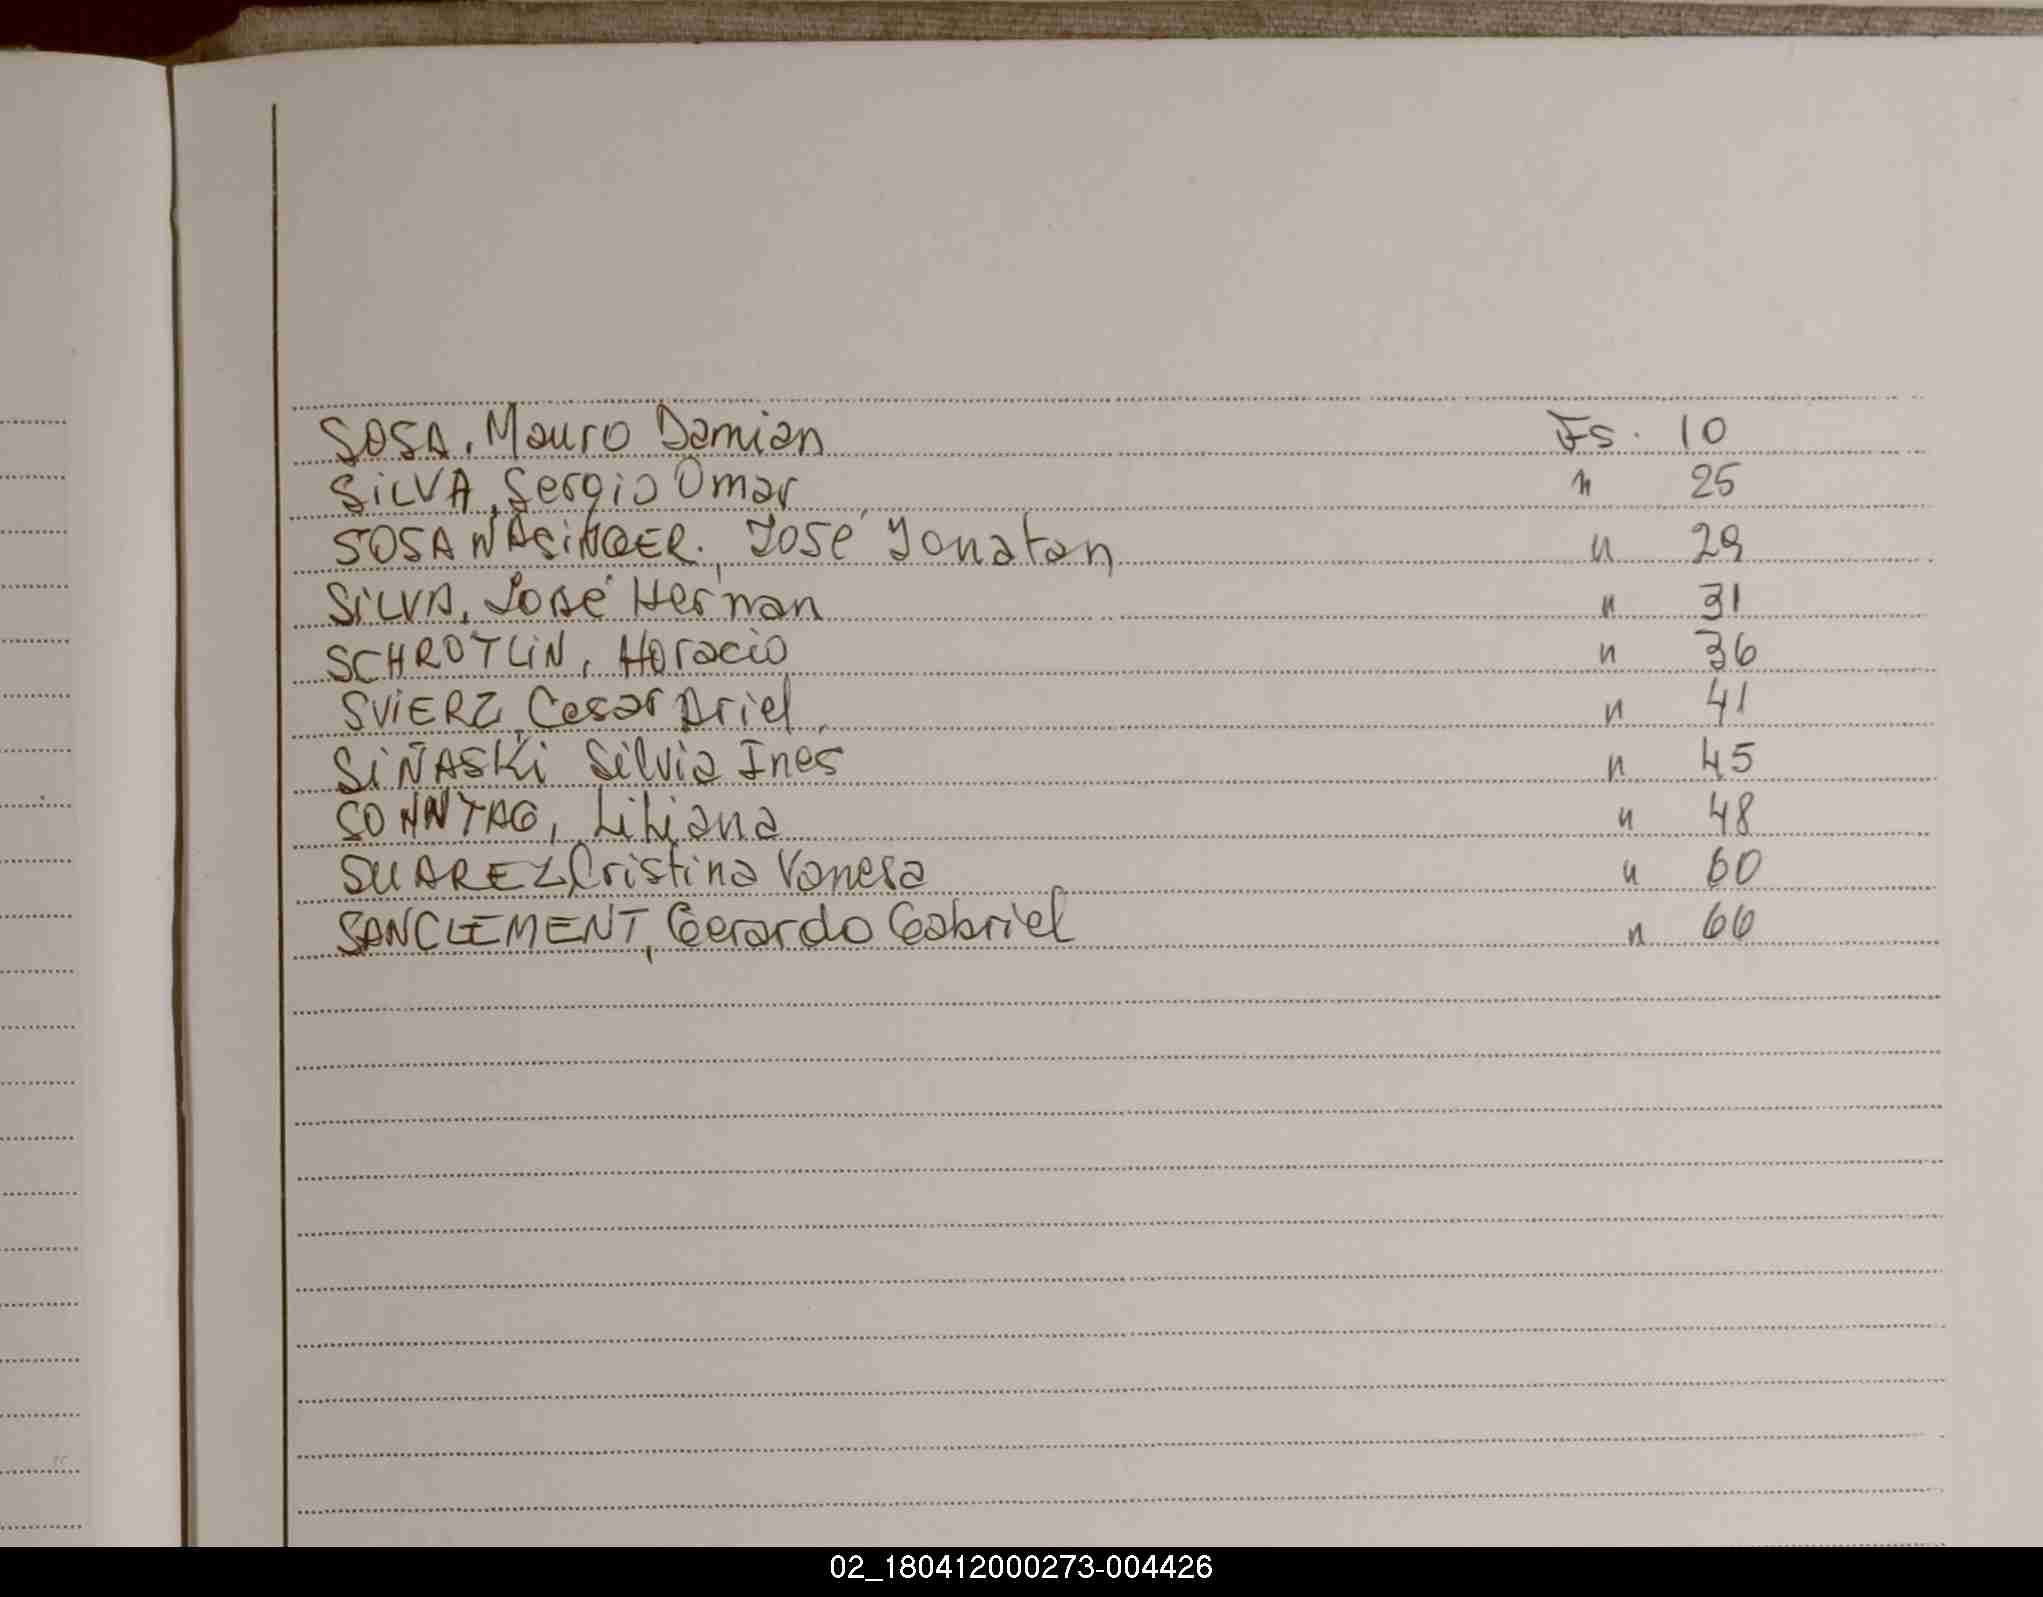 SOSA, Mauro Damian Fs. 10
SiLVA, Sergio Omar " 25
SOSA WASiNGER. José Jonatan " 29
SiLVA, José Hernan " 31
SCHROTLiN, Horacio " 36
SViERZ, Cesar Ariel " 41
SiÑASKi Silvia Ines " 45
SONNTAG, Liliana " 48
SUAREZ, Cristina Vanesa " 60
SANCLEMENT, Gerardo Gabriel " 66
02_180412000273-004426